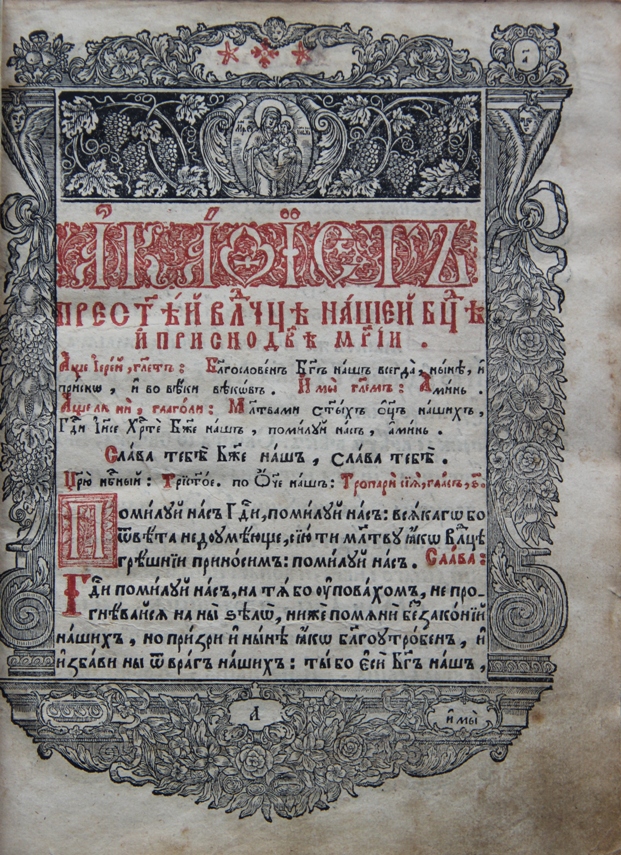 а҃
А҆КА́ѲЇСТЪ
ПРЕСТ҃Ѣ́Й ВЛⷣЧЦѢ НА́ШЕЙ БЦ҃Ѣ
И҆ ПРИСНОДВ҃Ѣ МР҃І́И .
А҆́ще і҆ере́й , гл҃етъ : Бл҃гослове́нъ Бг҃ъ на́шъ всегда̀ , ны́нѣ , и҆
при́снѡ , и҆ во вѣ́ки вѣкѡ́въ . И҆ мы̀ гл҃емъ : А҆ми́нь .
А҆́ще ли нѝ , глаго́ли : Мл҃твами ст҃ы́хъ ѻ҆ц҃ъ на́шихъ ,
Гдⷭ҇и І҆и҃се Хрⷭ҇тѐ Бж҃е на́шъ , поми́луй на́съ , а҆ми́нь .
Сла́ва тебѣ̀ Бж҃е на́шъ , сла́ва тебѣ̀ .
Цр҃ю̀ нбⷭ҇ный : Трист҃о́е . по Ѻ҆́ч҃е на́шъ : Тропарѝ сїѧ̑ , гла́съ , ѕ҃ .
Поми́луй на́съ Гдⷭ҇и , поми́луй на́съ : всѧ́кагѡ бо
ѿвѣ́та недоумѣ́юще , сїю́ ти мл҃тву ꙗ҆́кѡ влⷣцѣ
грѣ́шнїи прино́симъ : поми́луй на́съ . Сла́ва :
Гдⷭ҇и поми́луй на́съ , на тѧ́ бо ᲂу҆пова́хомъ , не про-
гнѣ́вайсѧ на ны̀ ѕѣлѡ̀ , нижѐ помѧнѝ беззако́нїй
на́шихъ , но при́зри и҆ ны́нѣ ꙗ҆́кѡ бл҃гоутро́бенъ , и҆
и҆зба́ви ны̀ ѿ вра̑гъ на́шихъ : ты́ бо є҆сѝ Бг҃ъ на́шъ ,
А
и҆ мы̀